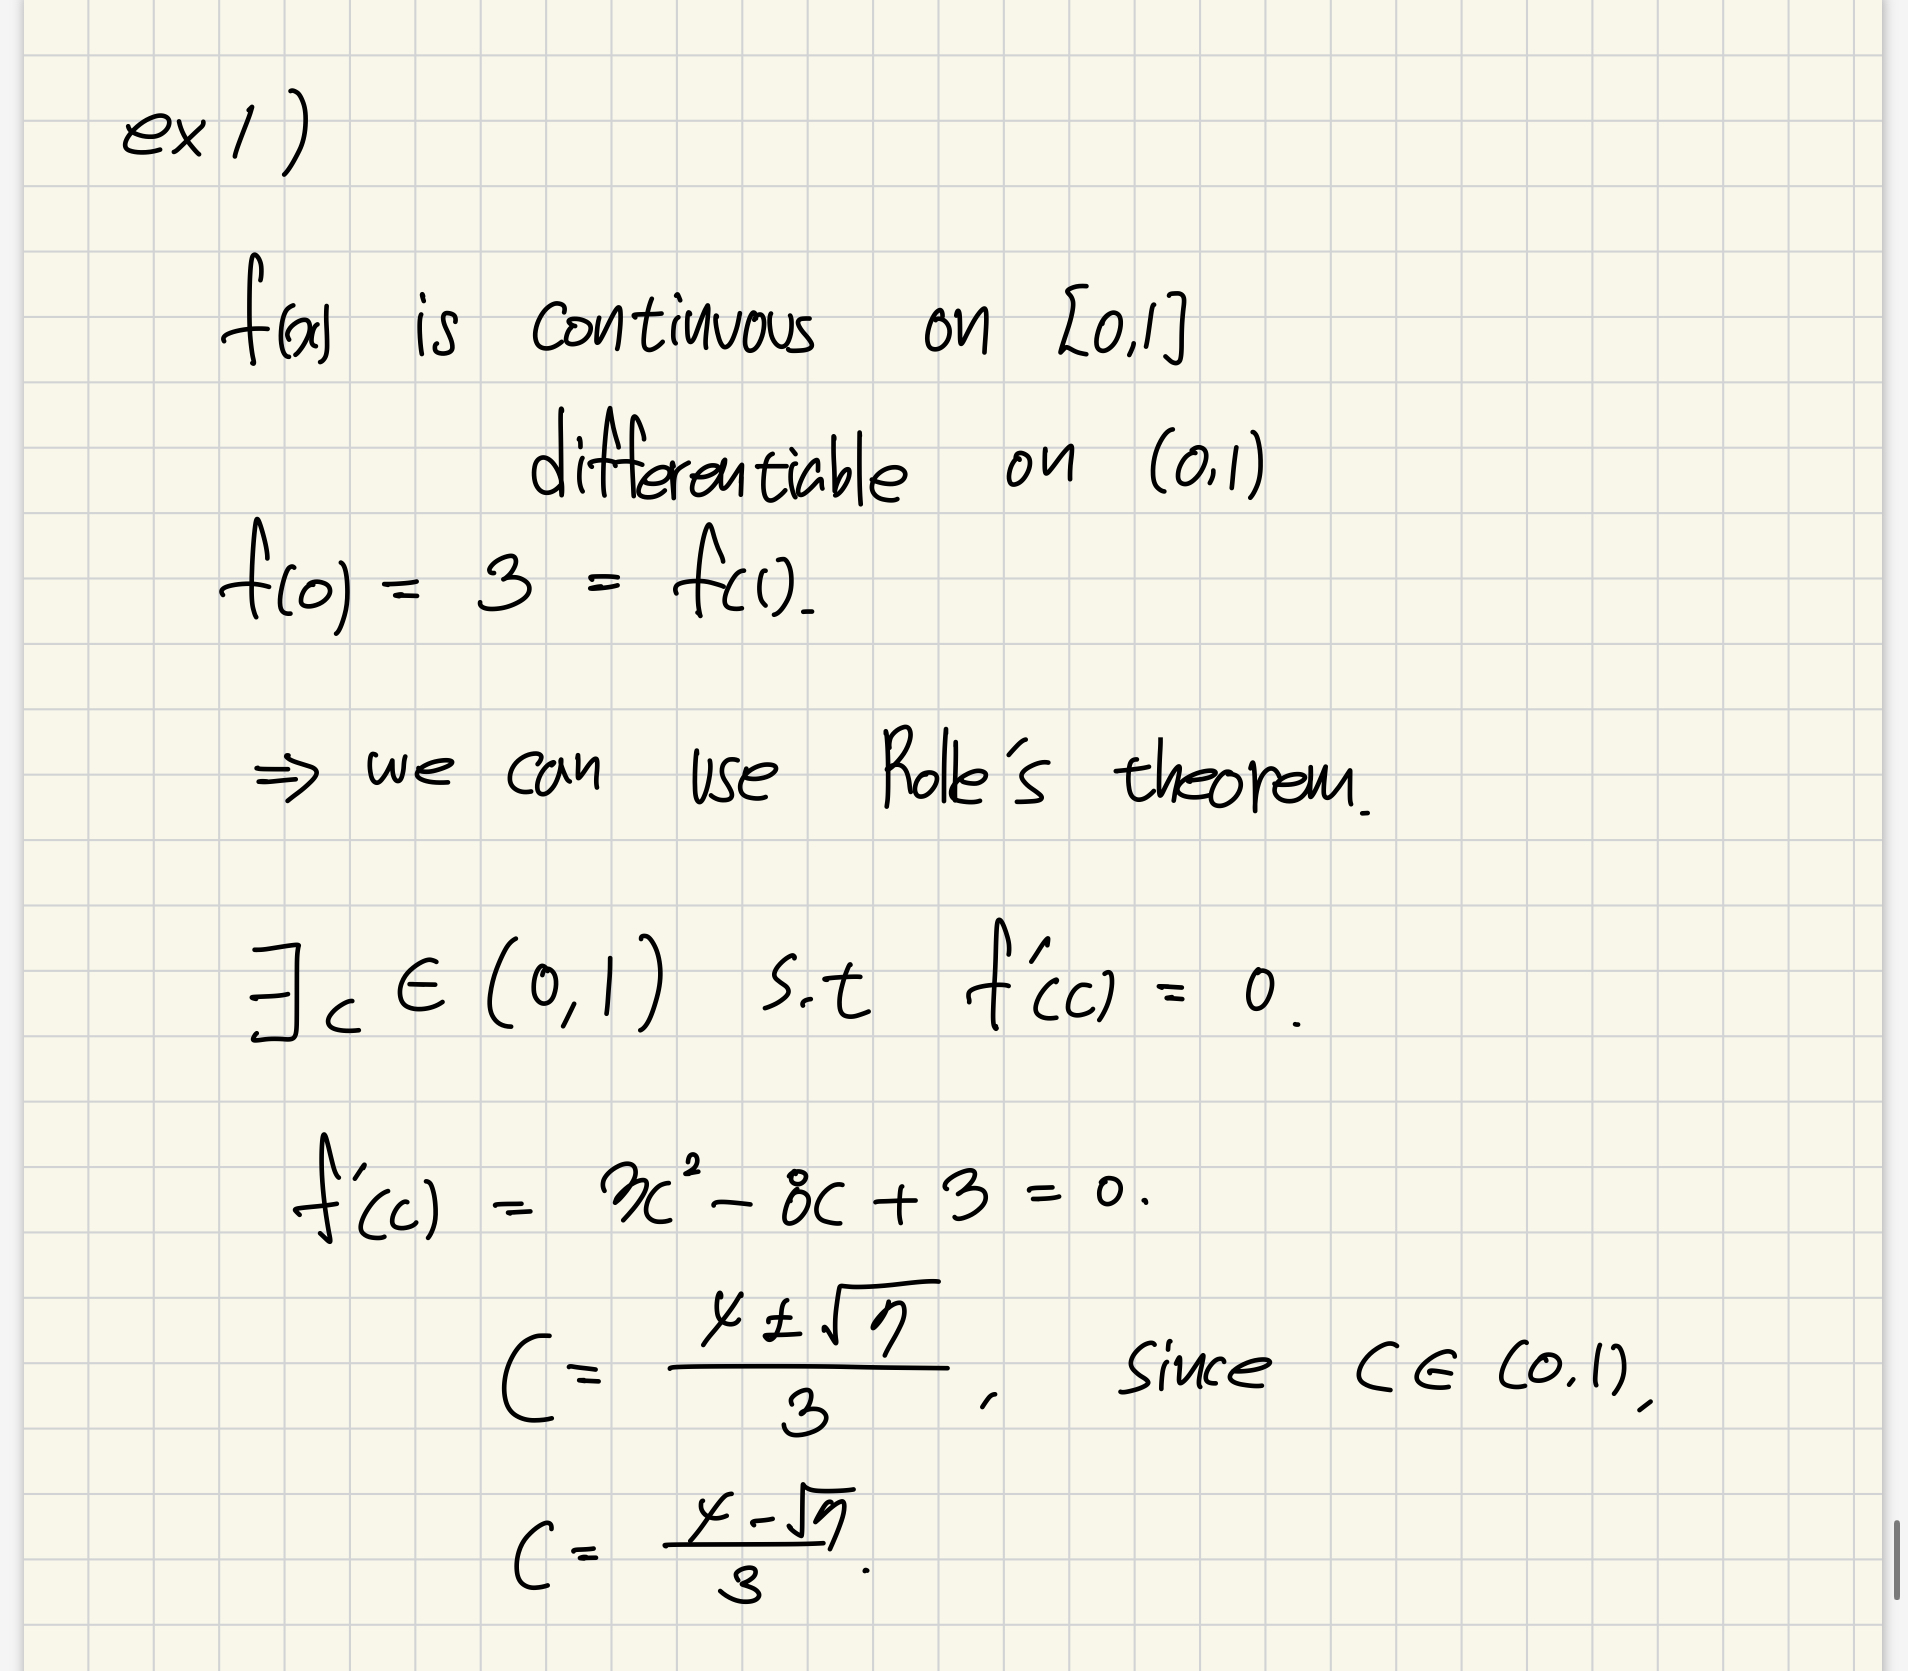 ex1)
f(x) is continuous on [0,1]
differentiable on (0,1)
f(0) = 3 = f(1).
⇒ we can use Rolle's theorem.
∃c ∈ (0,1) s.t f'(c) = 0.
f'(c) = 3c² - 8c + 3 = 0.
C = (4 ± √7)/3, since C ∈ (0,1),
C = (4 - √7)/3.